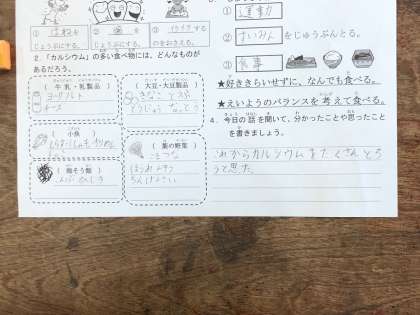 ① ほねを
じょうぶにする。
② 
じょうぶにする。
③ イライラする
のをおさえる。
2．「カルシウム」の多い食べ物には、どんなものが
あるだろう。
（ 牛乳・乳製品 ）
ヨーグルト
チーズ
（ 大豆・大豆製品 ）
きなこ とうふ
とうにゅう なっとう
（ 小魚 ）
（ 葉の野菜 ）
こまつな
ほうれんそう
ちんげんさい
（ 海そう類 ）
こんぶ ひじき
① 運動
② すいみん をじゅうぶんとる。
③ 食事
★好ききらいせずに、なんでも食べる。
★えいようのバランスを 考えて食べる。
4．今日の話を聞いて、分かったことや思ったこと
を書きましょう。
これからカルシウムをたくさんとろ
うと思った。